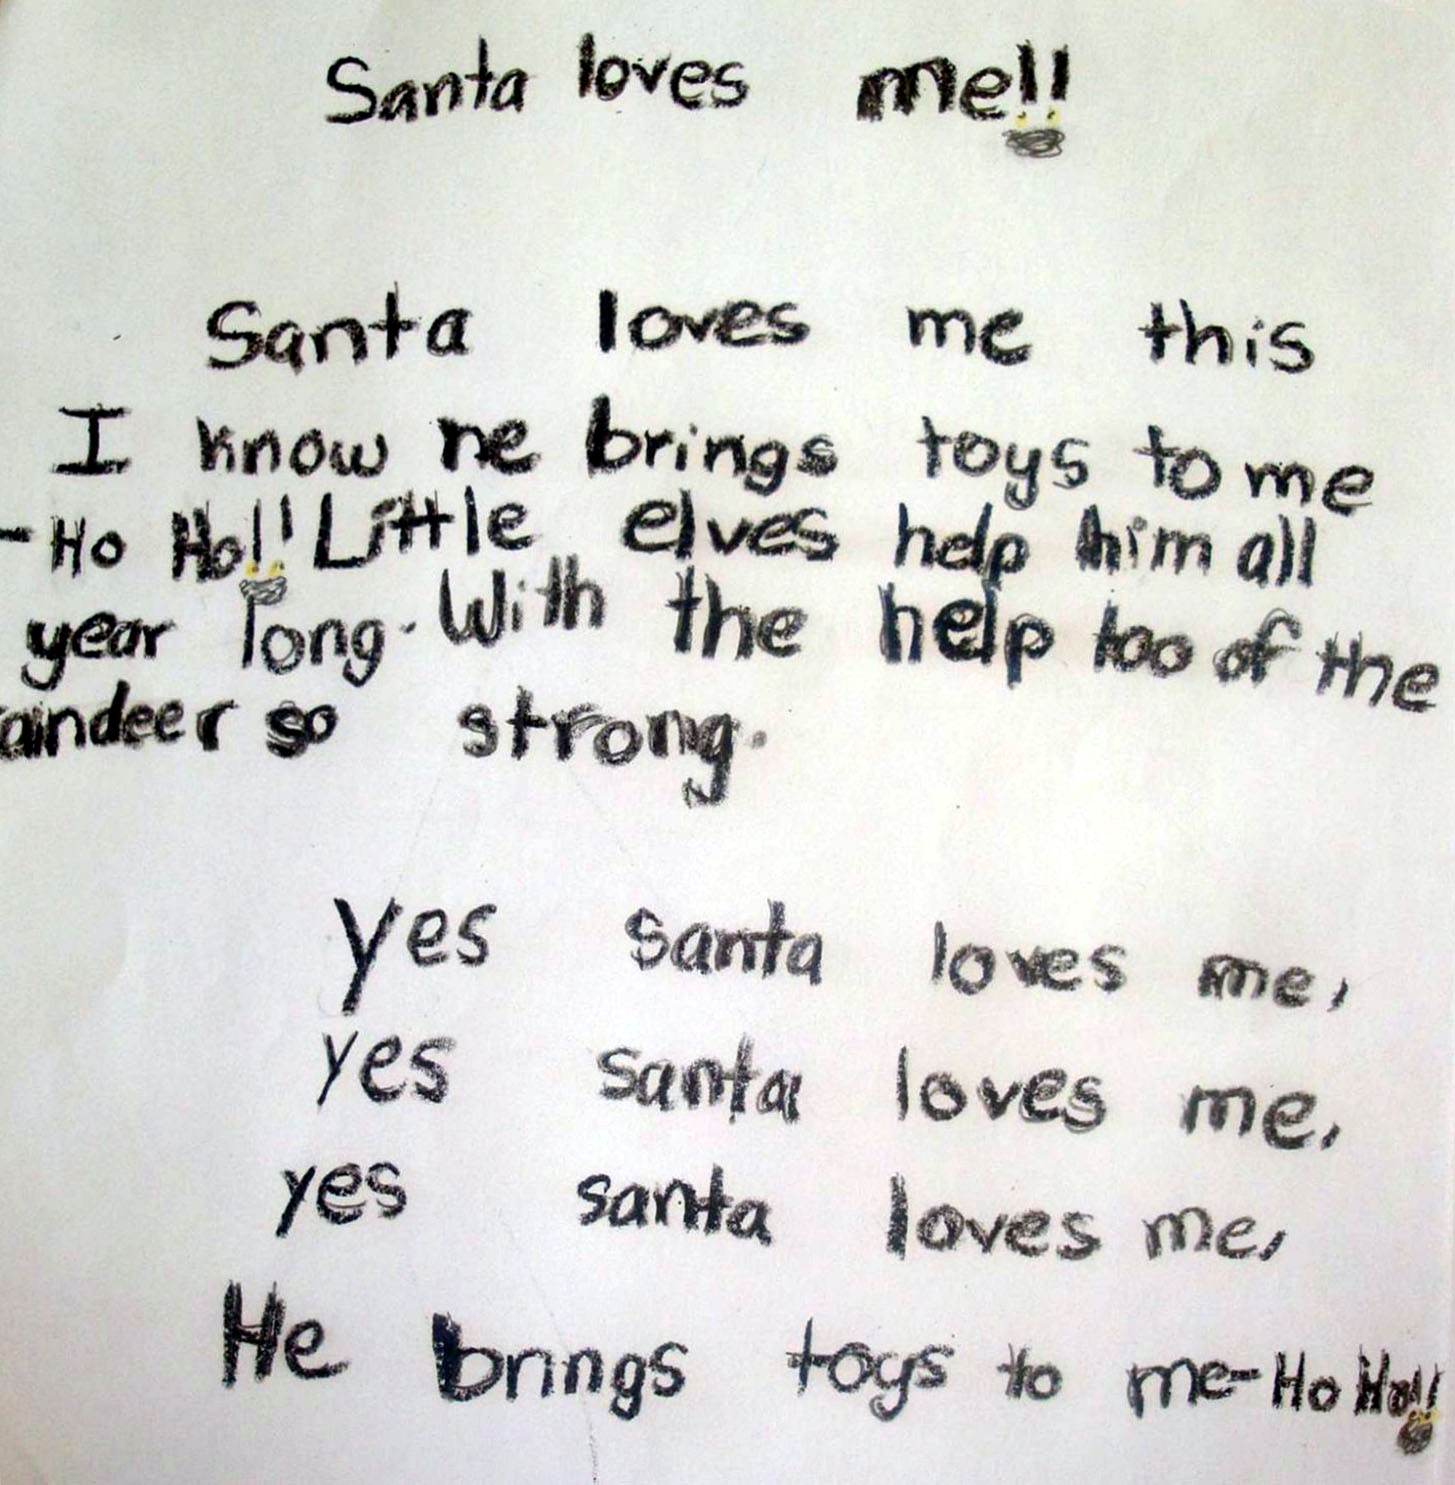 Santa loves me!!
Santa loves me this
I know he brings toys to me
-Ho Ho!! Little elves help him all
year long. With the help too of the
raindeer so strong.
yes santa loves me,
yes santa loves me,
yes santa loves me,
He brings toys to me-Ho Ho!!